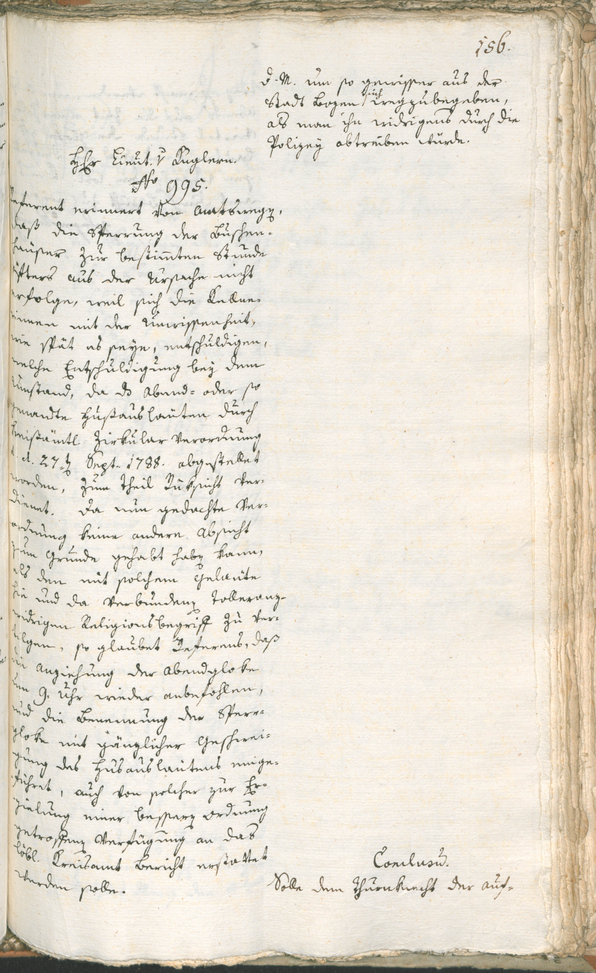 156.
d. M. um so gewisser aus der
Stadt Bozen sich wegzubegeben,
als man ihn widrigens durch die
Polizey abtreiben würde.
Hr. Lieut. v. Kuglern.
Nro 995.
Referent erinnert von Amtswegen,
daß die Sperrung der Buschen-
häuser zur bestimmten Stunde
öfters aus der Ursache nicht
erfolge, weil sich die Kellne-
rinnen mit der Unwissenheit,
wie spät es seye, entschuldigen,
welche Entschuldigung bey dem
Umstand, da das Abend- oder so
genannte Hußausläuten durch
Kreisämtl. Zirkular Verordnung
d. d. 27. Sept. 1788. abgestellet
worden, zum Theil Rüksicht ver-
dienet. Da nun gedachte Ver-
ordnung keine andere Absicht
zum Grunde gehabt haben kann,
als den mit solchem Geläute
hie und da verbundenen Tolleranz-
widrigen Religionsbegriff zu ver-
tilgen, so glaubet Referens, daß
die Anziehung der Abendgloke
um 9. Uhr wieder anbefohlen,
und die Benennung der Sperr-
gloke mit gänzlicher Geschwei-
gung des Husausläutens einge-
führet, auch von solcher zur Er-
zielung einer bessern Ordnung
getroffenen Verfügung an das
löbl. Kreisamt Bericht erstattet
werden solle.
Conclusum.
Solle dem Thurnknecht der auf-